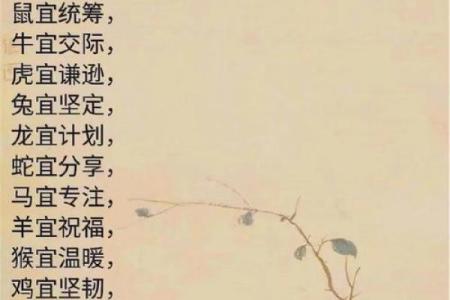 鼠宜统筹，
牛宜交际，
虎宜谦逊，
兔宜坚定，
龙宜计划，
蛇宜分享，
马宜专注，
羊宜祝福，
猴宜温暖，
鸡宜坚韧，